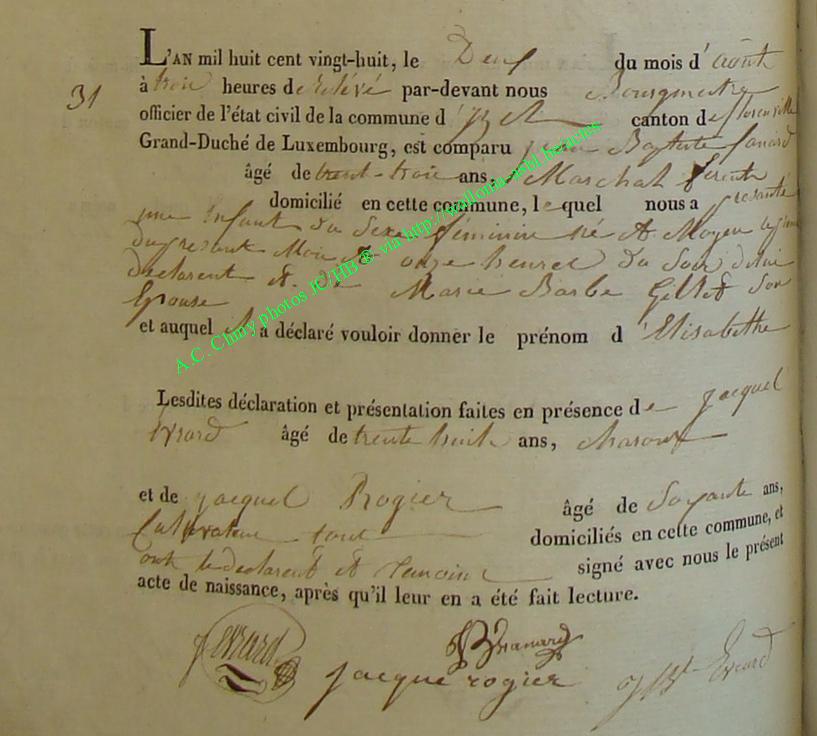 L'AN mil huit cent vingt-huit, le Deux du mois d'août
31
à trois heures de relévé par-devant nous Bourgmestre
officier de l'état civil de la commune d'Izel canton de florenville
Grand-Duché de Luxembourg, est comparu jean Baptiste
âgé de trent-trois ans, Marchal ferent
domicilié en cette commune, lequel nous a presenté
une Enfant du Sexe féminin né A Moyen
du present Moi à onze heures du Soir de lui
declarent Et de Marie Barbe Gillet Son
Epouse
et auquel il a déclaré vouloir donner le prénom d'Elisabethe
Lesdites déclaration et présentation faites en présence de jacque
Evrard âgé de trente huit ans, charon
et de jacque Rogier âgé de Soixante ans,
Cultivateur tous domiciliés en cette commune, et
ont le declarent et temoins signé avec nous le présent
acte de naissance, après qu'il leur en a été fait lecture.
j evrard
jacque rogier
j Bt Evrard
A.C. Chiny photos JC/HB ® via http://wallonia-asbl.be/actes